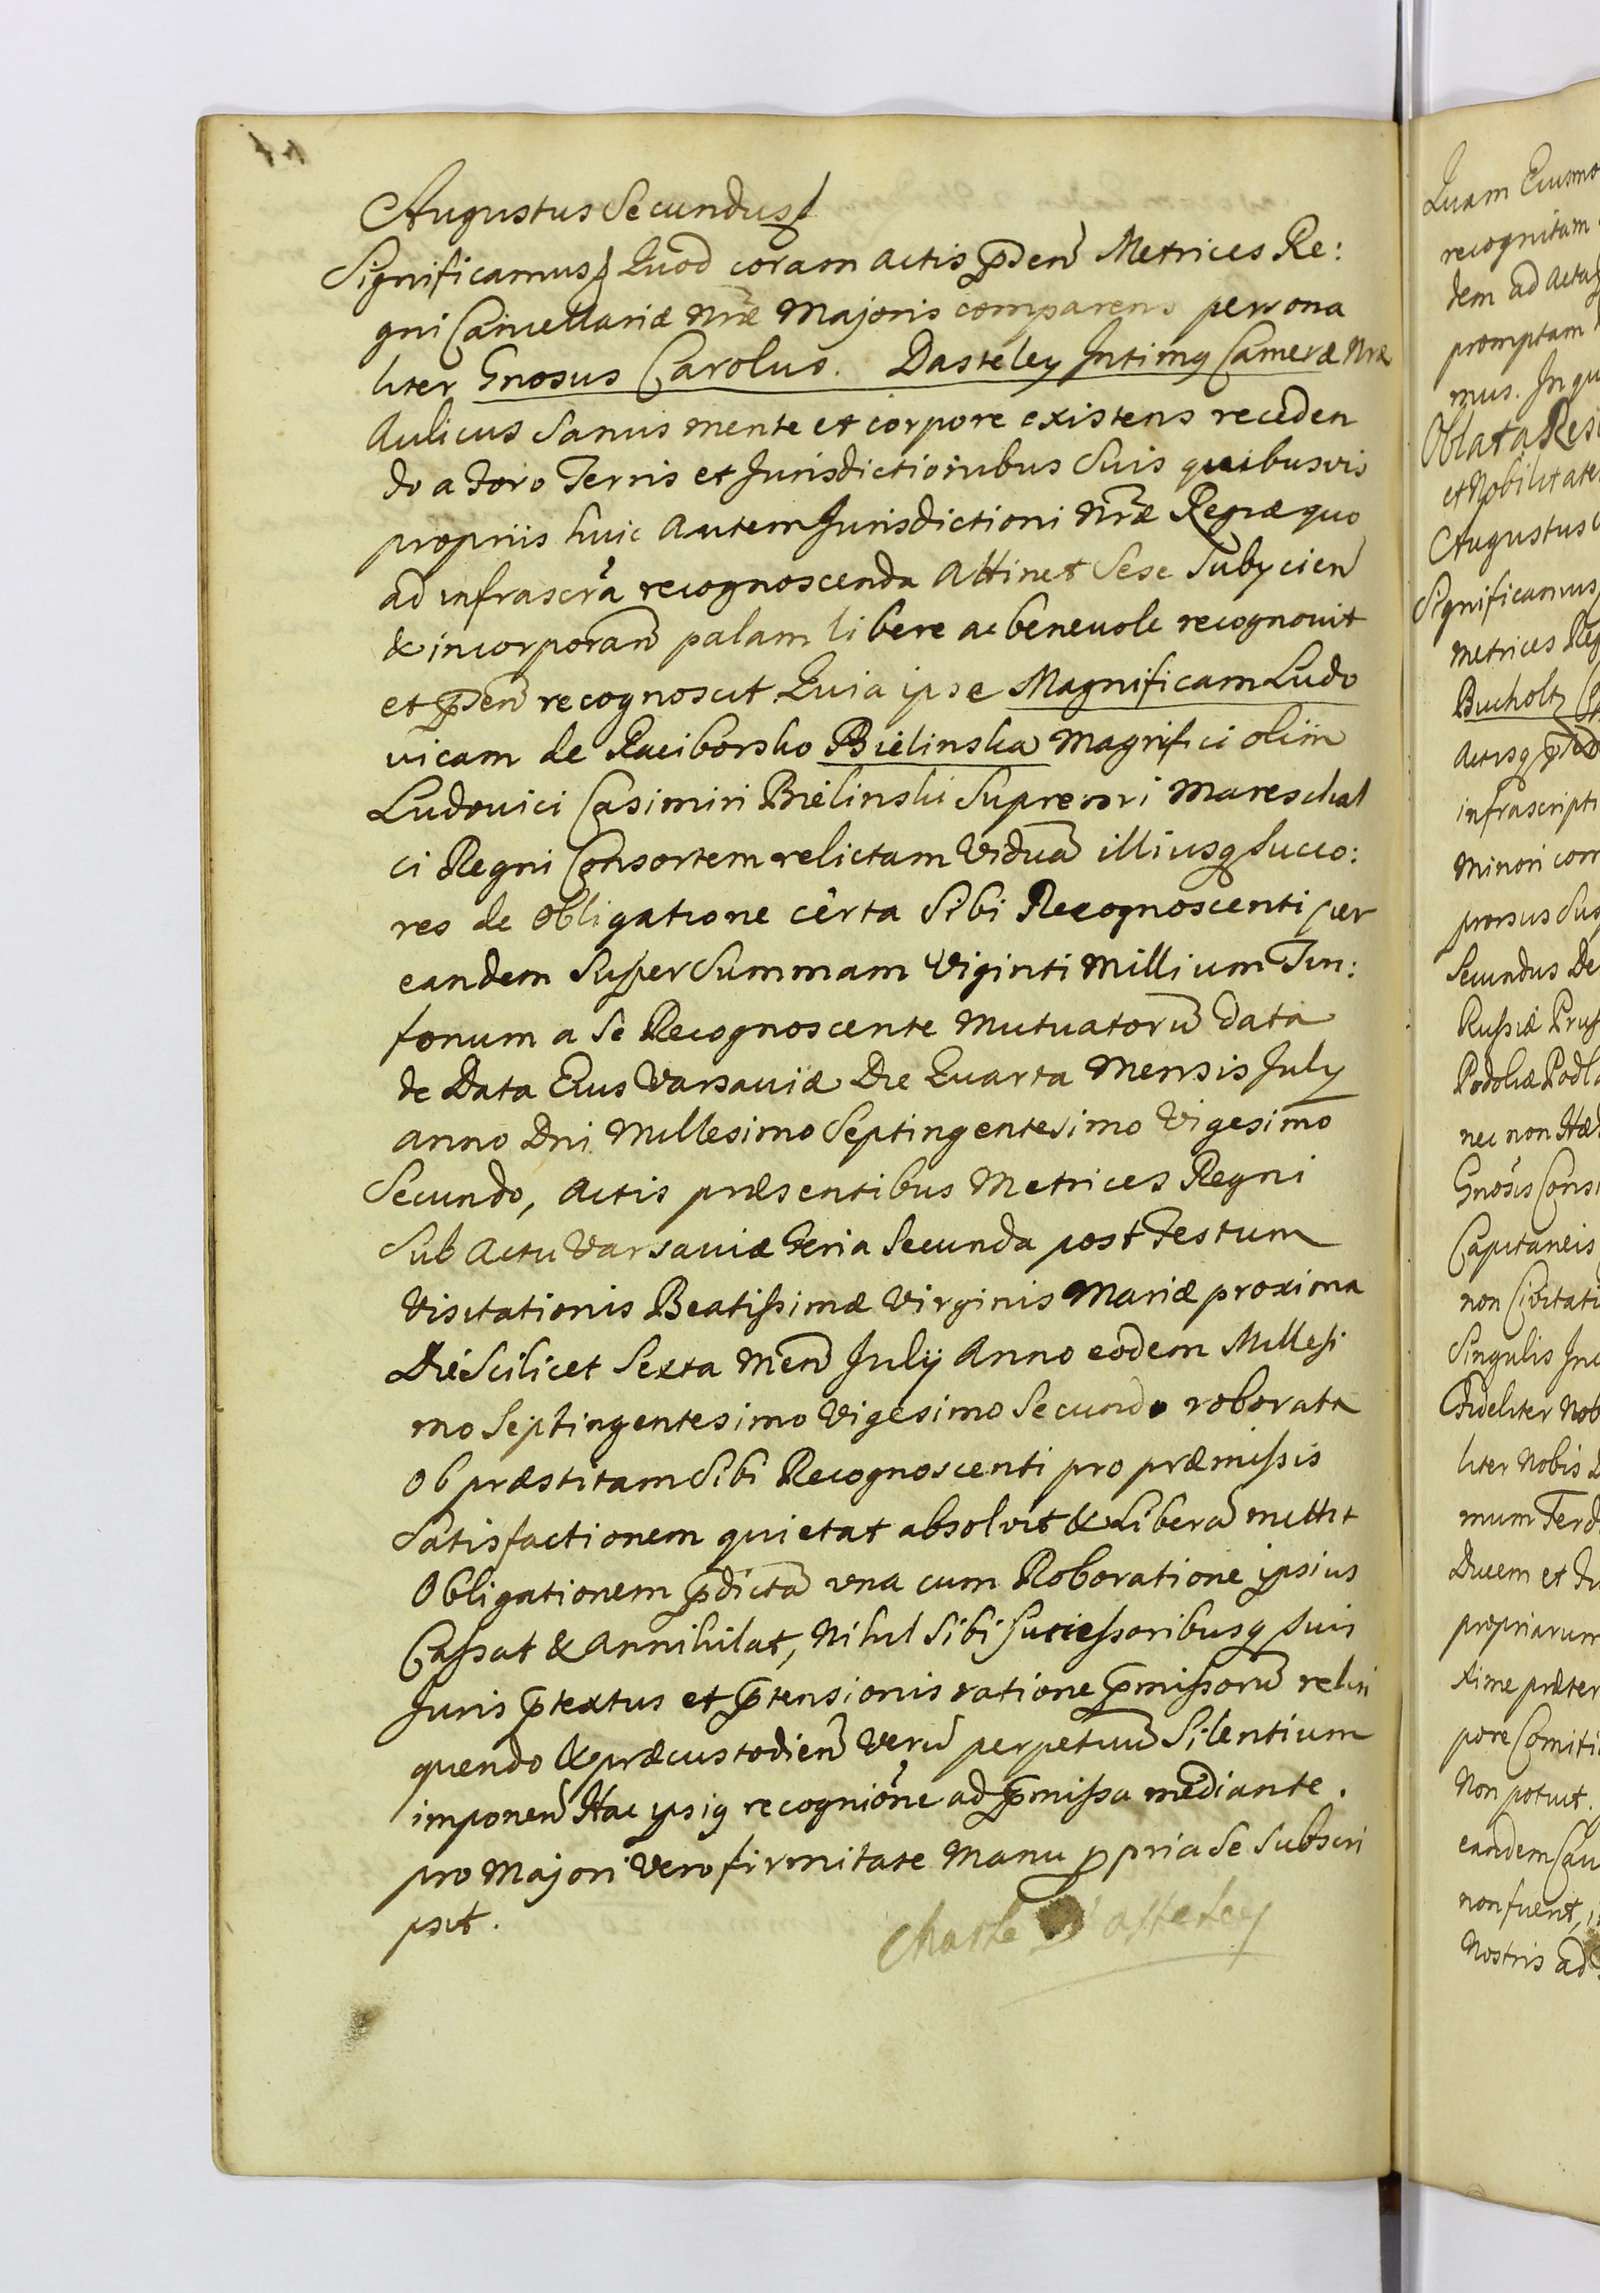 Augustus Secundus
Significamus Quod coram actis p̃den̄ Metrices Re:
gni Cancellariæ Nr̃æ Majoris comparens persona
liter Gnosus Carolus. Dasteley Intimꝯ Cameræ Nræ
Aulicus Sanus mente et corpore existens receden
do a foro Terris et Jurisdictionibus Suis quibusvis
propriis huic autem Jurisdictioni Nr̃æ Regiæ quo
ad infrascr̃a recognoscenda Attinet Sese Subycien̄
& incorporan̄ palam libere ac benevole recognovit
et p̃den̄ recognoscit Quia ipse Magnificam Ludo
vicam de Raciborsko Bielinska Magnifici olim
Ludovici Casimiri Bielinski Supremi Mareschal
ci Regni Consortem relictam Viduā illiusq Succo:
res de Obligatione certa Sibi Recognoscenti per
eandem Super Summam Viginti Millium Tin:
fonum a Se Recognoscente Mutuatorū data
de Data Eius Varsaviæ Die Quarta Mensis July
anno Dni Millesimo Septingentesimo Vigesimo
Secundo, Actis præsentibus Metrices Regni
Sub Actu Varsaviæ Feria Secunda post Festum
Visitationis Beatissimæ Virginis Mariæ proxima
Die Scilicet Sexta Men̄ July Anno eodem Millesi
mo Septingentesimo Vigesimo Secundo roborata
Ob præstitam Sibi Recognoscenti pro præmissis
Satisfactionem quietat absolvit & Liberū mittit
Obligationem p̃dictā una cum Roboratione ipsius
Cassat & Annihilat, Nihil Sibi Successoribusq Suis
Juris p̃textus et p̃tensionis ratione p̃missorū relin
quendo & præcustodien̄ Verū perpetuū Silentium
imponen̄ Hac ipsiꝯ recognic̃ne ad p̃missa mediante.
pro Majori Vero firmitate Manu ppria Se Subscri
psit.
Charle Dasteley
Quam Eiusmo
recognitam
dem ad Acta
promptam
mus. In qu
Oblata Resi
et Nobilitate
Augustus
Significamus
Metrices Reg
Bucholtz
infrascripti
Minori corr
prorsus Sus
Secundus De
Russiæ Prus
Podoliæ Podla
nec non Hæ
Gnosis Consi
Capitaneis
non Civitati
Singulis Inc
Fideliter Nob
liter Nobis
mum Ferd
Ducem et
propriarum
xime præter
pore Comiti
Non potuit.
eandem Cau
non fuerit,
Nostris ad